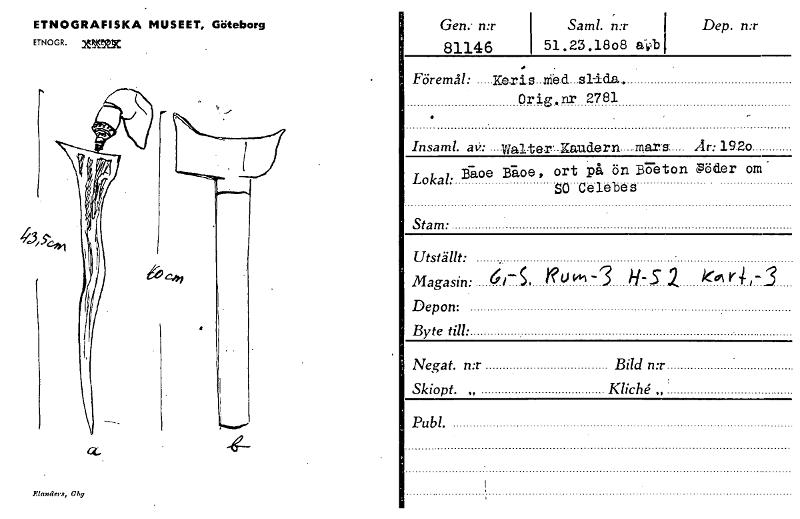 ETNOGRAFISKA MUSEET, Göteborg
ETNOGR.
43,5cm
60 cm
a
b
Elanders, Gbg
Gen. n:r
Saml. n:r
Dep. n:r
81146
51.23.18o8 a,b
Föremål: Keris med slida.
Orig.nr 2781
Insaml. av: Walter Kaudern mars År: 192o
Lokal: Bāoe Bāoe, ort på ön Bōeton Söder om
SO Celebes
Stam:
Utställt:
Magasin: G,-S. Rum-3 H-S2 Kart,-3
Depon:
Byte till:
Negat. n:r Bild n:r
Skiopt. „ Kliché „
Publ.